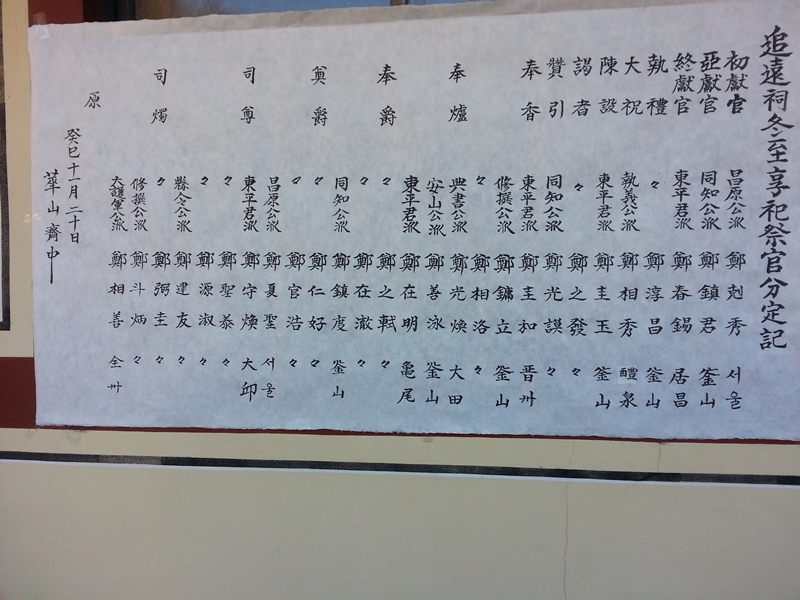 追遠祠冬至享祀祭官分定記
初獻官 昌原公派 鄭尅秀 서울
亞獻官 同知公派 鄭鎮君 釜山
終獻官 東平君派 鄭春錫 居昌
執禮 〃 鄭淳昌 釜山
大祝 執義公派 鄭相秀 醴泉
陳設 東平君派 鄭圭玉 釜山
謁者 〃 鄭之發 〃
贊引 同知公派 鄭光謨 〃
奉香 東平君派 鄭圭和 晋州
修撰公派 鄭鏞立 釜山
〃 鄭相洛 〃
奉爐 典書公派 鄭光煥 大田
安山公派 鄭善泳 釜山
東平君派 鄭在明 亀尾
奉爵 〃 鄭之軾 〃
〃 鄭在澈 〃
同知公派 鄭鎮度 釜山
奠爵 〃 鄭仁好 〃
〃 鄭官浩 〃
昌原公派 鄭夏聖 서울
司尊 東平君派 鄭守煥 大邱
〃 鄭聖泰 〃
〃 鄭源淑 〃
縣令公派 鄭建友 〃
司燭 〃 鄭弼圭 〃
修撰公派 鄭斗炳 〃
大護軍公派 鄭相善 全州
原
癸巳十一月二十日
華山齊中